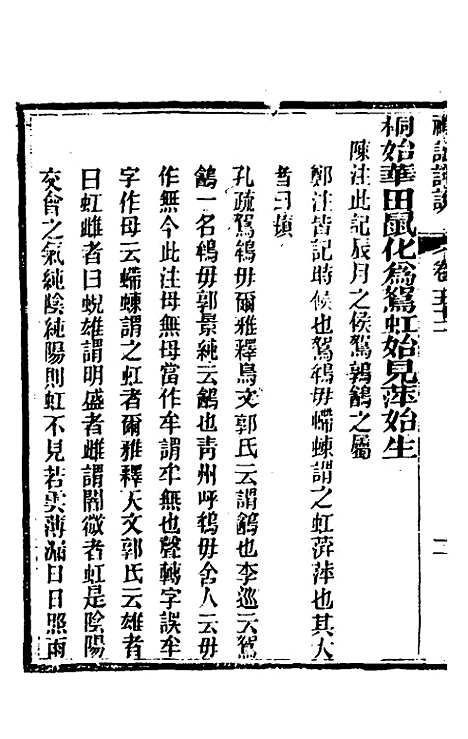 禮記詳說 卷五十二 二
桐始華田鼠化爲鴽虹始見萍始生
陳注此記辰月之侯鴽鶉鷂之屬
鄭注皆記時候也鴽鴾毋螮蝀謂之虹蓱萍也其大
者曰蘋
孔疏鴽鴾毋爾雅釋鳥文郭氏云謂鷂也李巡云鴽
鷂一名鴾毋郭景純云鷂也靑州呼鴾毋舍人云毋
作無今此注母無母當作牟謂牟無也聲轉字誤牟
字作毋云螮蝀謂之虹者爾雅釋天文郭氏云雄者
曰虹雌者曰蜺雄謂明盛者雌謂闇微者虹是陰陽
交會之氣純陰純陽則虹不見若雲薄漏日日照雨